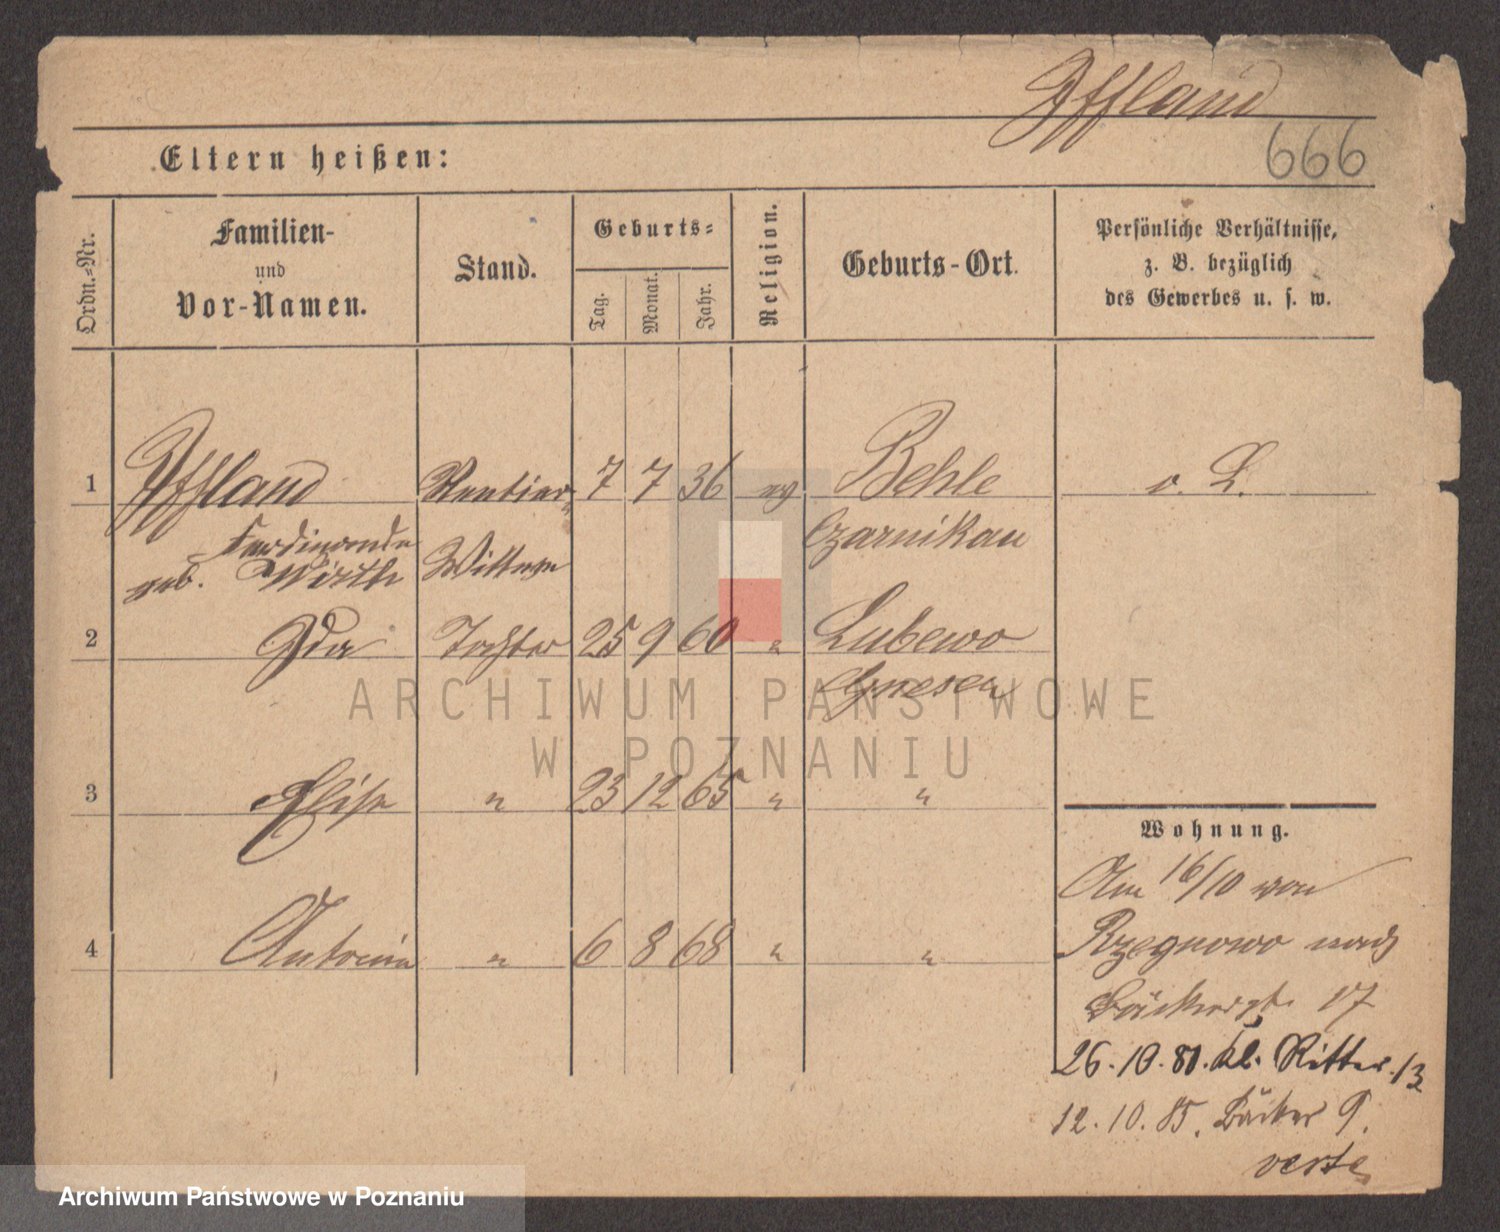 Iffland
666
Eltern heißen:
Ordn.=Nr.
Familien-
und
Vor-Namen.
Stand.
Geburts=
Tag.
Monat.
Jahr.
Religion.
Geburts-Ort.
Persönliche Verhältnisse,
z. B. bezüglich
des Gewerbes u. s. w.
1 Iffland Rentier 7 7 36 ev Behle o. L.
Ferdinande Czarnikau
geb. Wirth Wittwe
2 Ida Tochter 25 9 60 " Lubowo
Gnesen
3 Elise " 23 12 65 " "
Wohnung.
4 Antonie " 6 8 68 " "
Am 16/10 von
Rzegnowo nach
Bäckerst. 17
26.10.81. Kl. Ritter. 13
12.10.85. Bäcker 9.
verte
ARCHIWUM PAŃSTWOWE
W POZNANIU
Archiwum Państwowe w Poznaniu